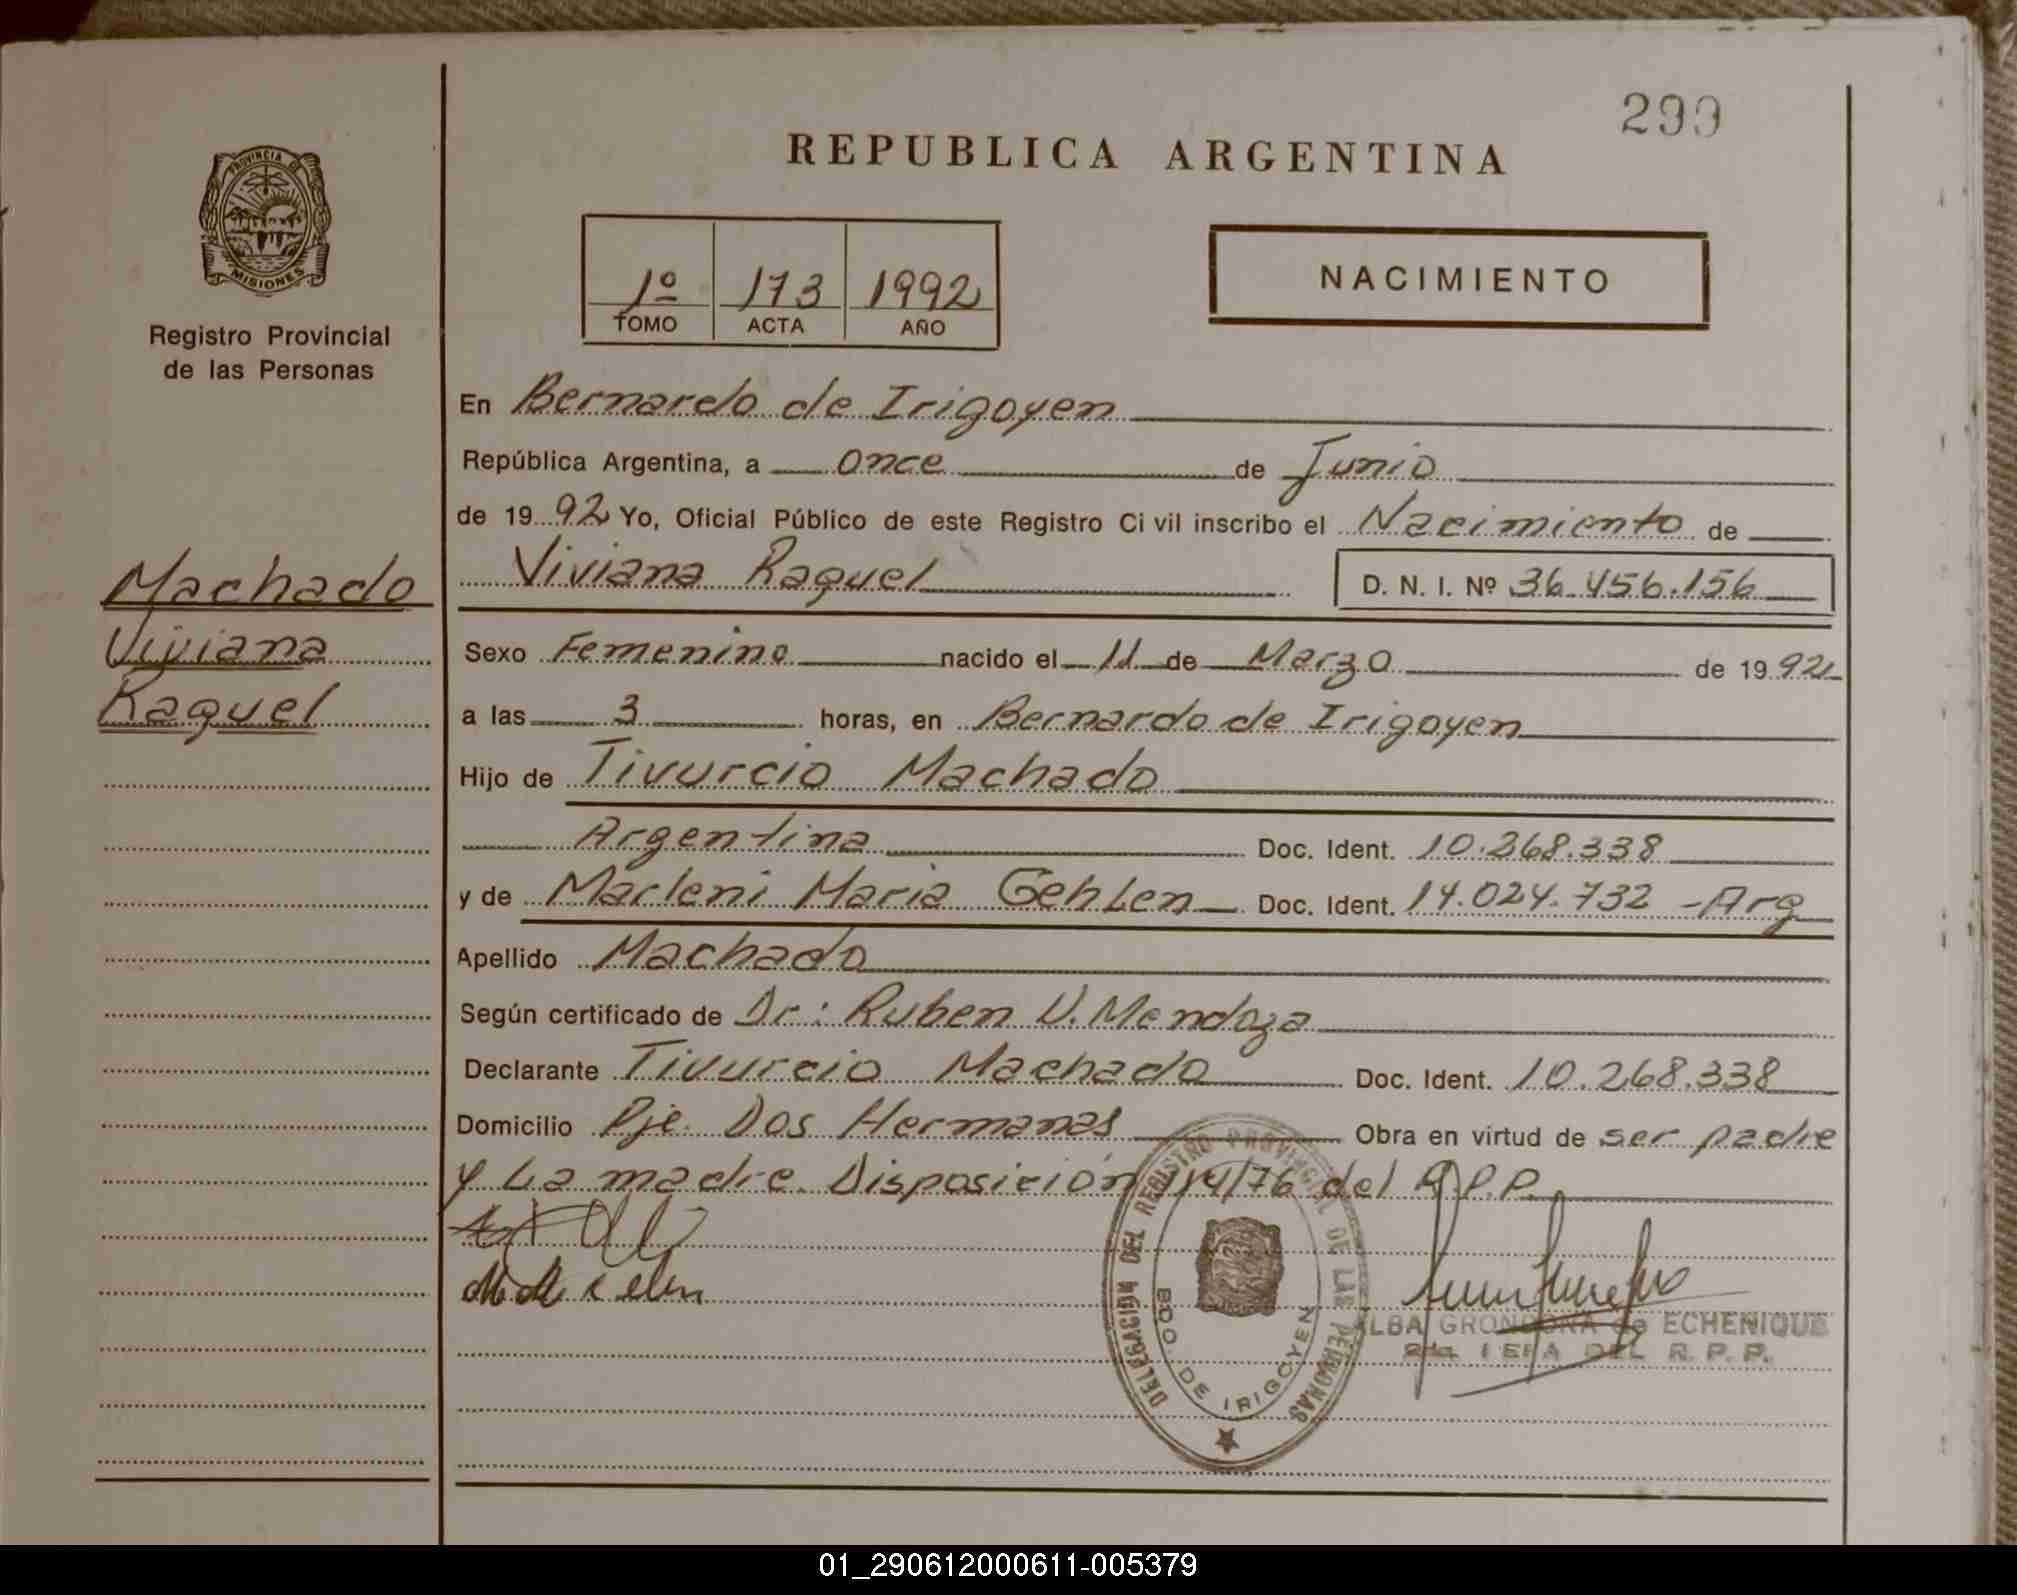 299
REPUBLICA ARGENTINA
PROVINCIA DE
MISIONES
Registro Provincial
de las Personas
1º 173 1992
TOMO ACTA AÑO
NACIMIENTO
En Bernardo de Irigoyen
República Argentina, a once de Junio
de 1992 Yo, Oficial Público de este Registro Civil inscribo el Nacimiento de
Viviana Raquel D. N. I. Nº 36.456.156
Machado
Viviana
Raquel
Sexo Femenino nacido el 11 de Marzo de 1992
a las 3 horas, en Bernardo de Irigoyen
Hijo de Tivurcio Machado
Argentina Doc. Ident. 10.268.338
y de Marleni Maria Gehlen Doc. Ident. 14.024.732 - Arg
Apellido Machado
Según certificado de Dr: Ruben V. Mendoza
Declarante Tivurcio Machado Doc. Ident. 10.268.338
Domicilio Pje. Dos Hermanas Obra en virtud de ser padre
y La madre. Disposición 114/76 del R.P.P.
DELEGACION DEL REGISTRO PROVINCIAL DE LAS PERSONAS
BDO. DE IRIGOYEN
ALBA GRONDONA de ECHENIQUE
2da. JEFA DEL R. P. P.
01_290612000611-005379